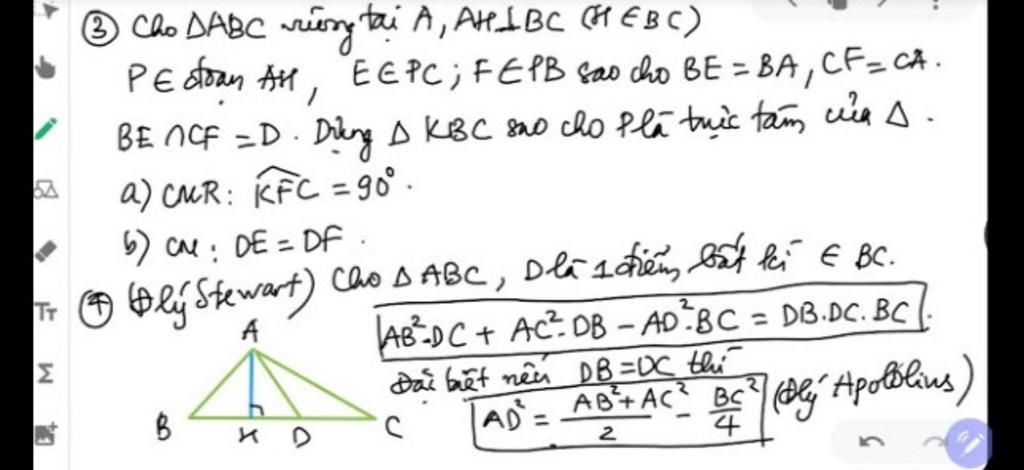 ③ Cho ΔABC vuông tại A, AH⊥BC (H ∈ BC)
P ∈ đoạn AH, E ∈ PC; F ∈ PB sao cho BE = BA, CF = CA.
BE ∩ CF = D. Dựng Δ KBC sao cho P là trực tâm của Δ.
a) CMR: \widehat{KFC} = 90°.
b) CM: DE = DF.
④ (Đlý Stewart) Cho Δ ABC, D là 1 điểm bất kì ∈ BC.
AB².DC + AC².DB – AD².BC = DB.DC.BC.
Đặc biệt nếu DB = DC thì
AD² = \frac{AB² + AC²}{2} – \frac{BC²}{4} (Đlý Apolôlius)
A
B H D C
Tт
Σ